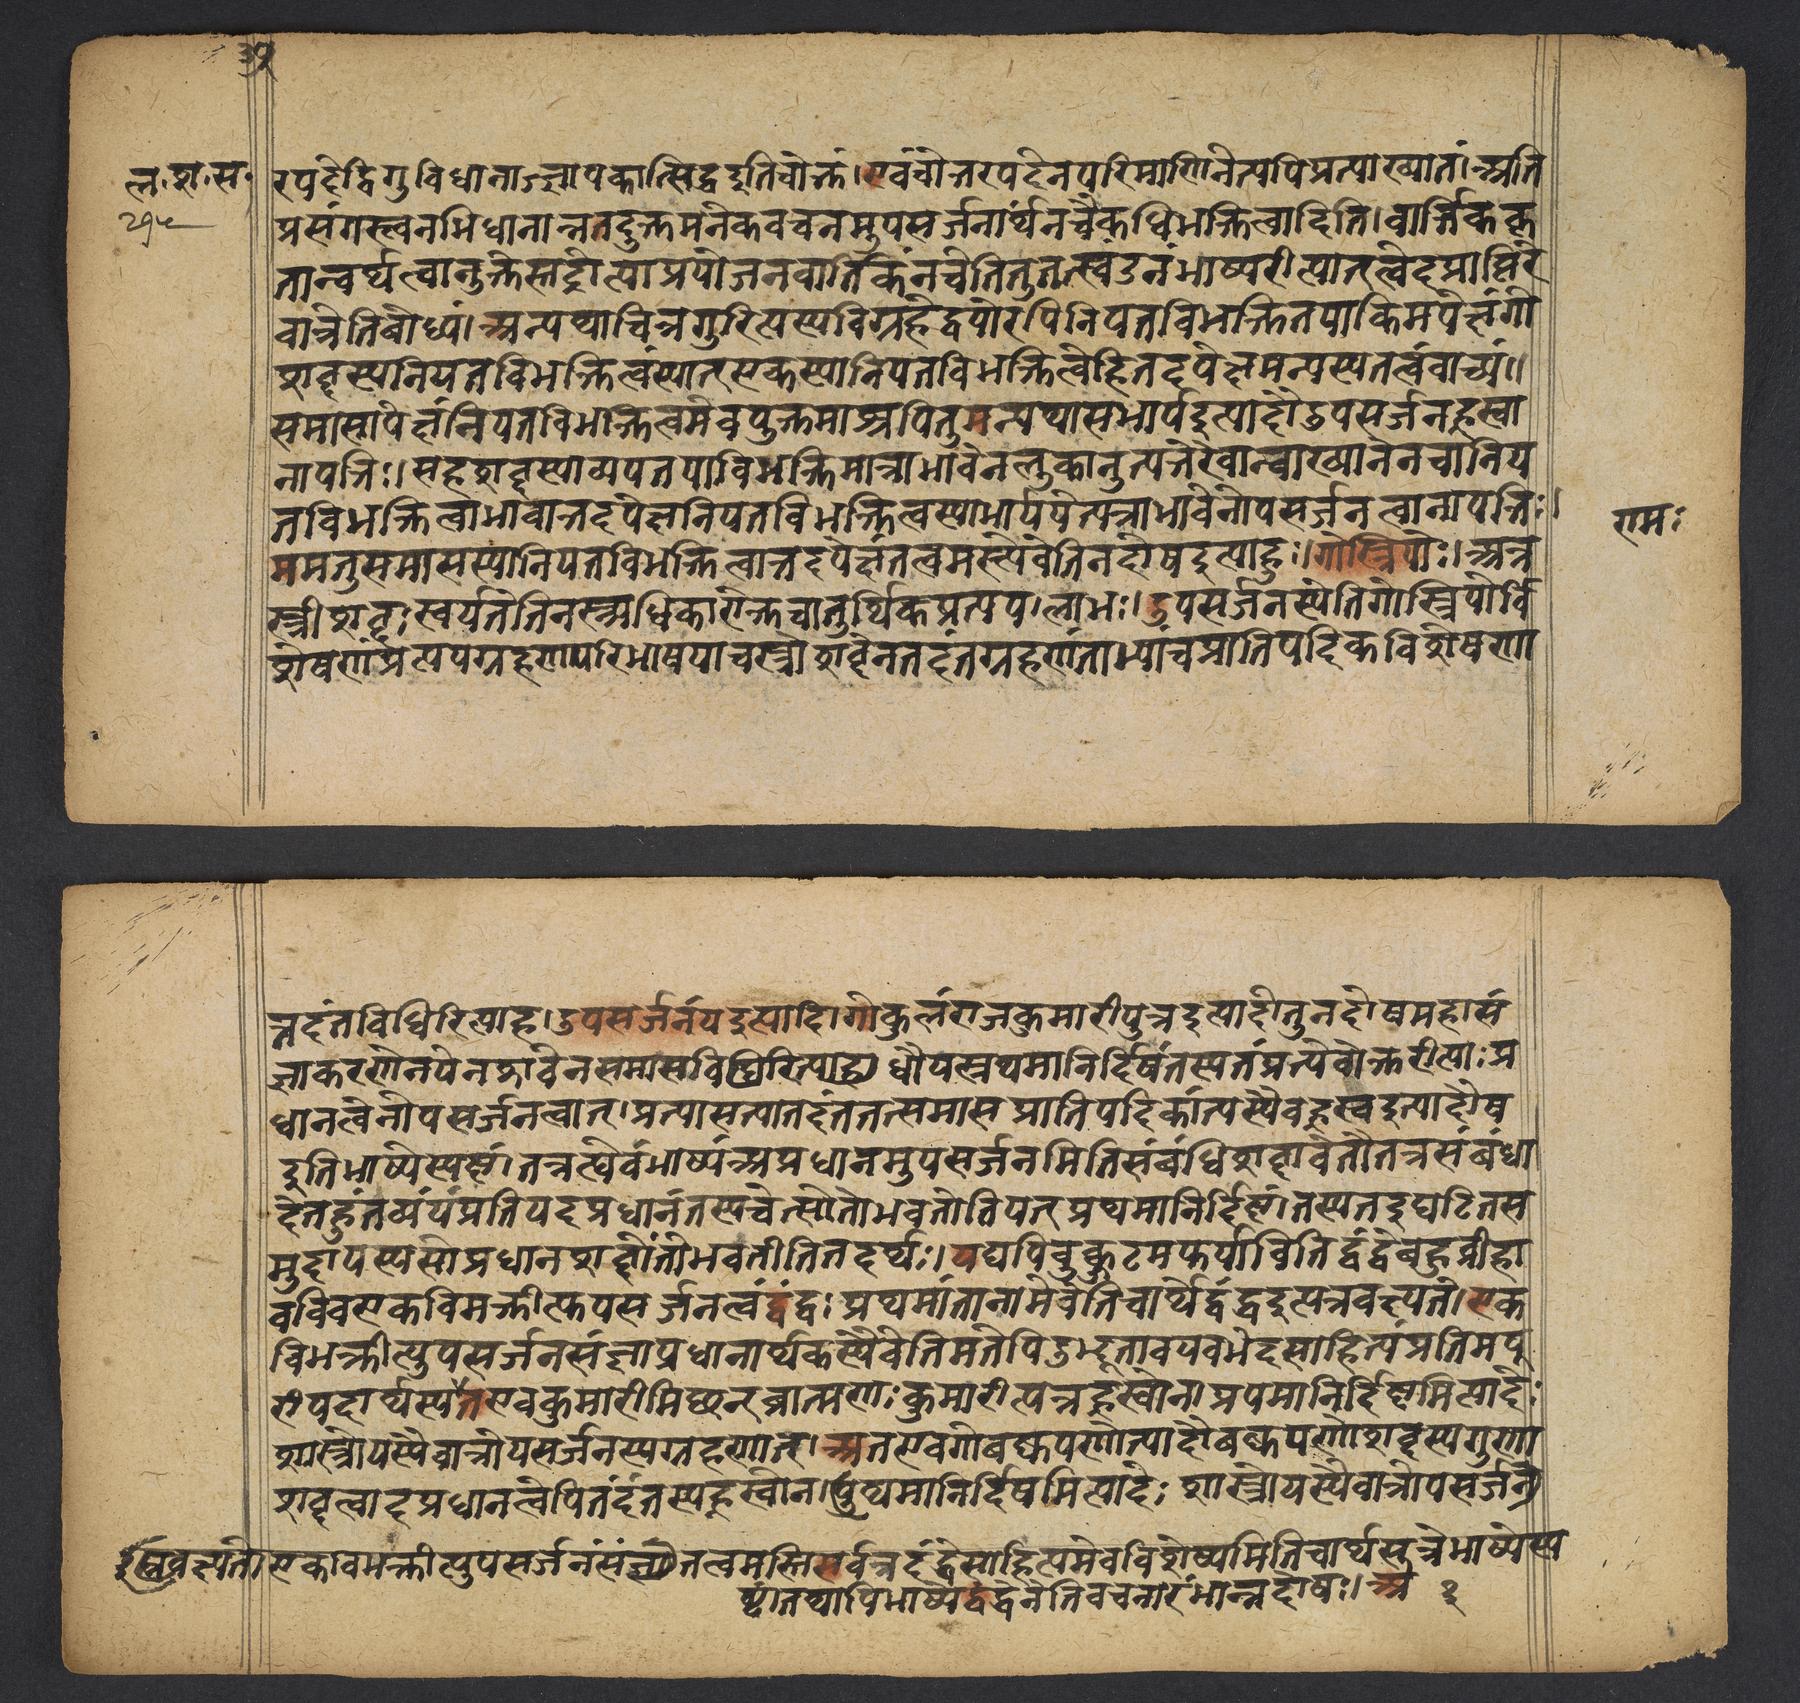 ३१
ल.श.स.
२१५
रपदेद्विगुविधानाज्ज्ञापकात्सिद्धइतिचोक्तं।एवंचोत्तरपदेनपरिमाणिनेत्यपिप्रत्याख्यातं।अति
प्रसंगस्त्वनभिधानान्नतदुक्तमनेकवचनमुपसर्जनार्थेनचैकविभक्तित्वादिति।वार्त्तिककृ
तान्वर्थत्वानुक्तेस्तद्रीत्याप्रयोजनवार्तिकंनचेतितुतत्खंडनंभाष्यरीत्यातत्त्वेहप्राप्तिरे
वान्नेतिबोध्यं।अन्यथाचित्रगुरित्यस्यविग्रहेद्वयोरपिनियतविभक्तितयाकिमपेक्षंगो
शब्दस्यनियतविभक्तित्वंस्यात्एकस्यानियतविभक्तित्वेहितदपेक्षमन्यस्यतत्वंवाच्यं।।
समासापेक्षंनियतविभक्तित्वमेवयुक्तमाअपितुमन्यथासभार्यइत्यादौउपसर्जनह्रस्वा
नापत्तिः।सहशब्दस्याव्ययतयाविभक्तिमात्राभावेनलुकानुत्पत्तेरेवान्वाख्यानेनचानिय
तविभक्तित्वाभावात्तदपेक्षनियतविभक्तित्वस्याभार्यपेत्यत्राभावेनोपसर्जनत्वानापत्तिः।
रामः
ममतुसमासस्यानियतविभक्तित्वात्तदपेक्षंतत्वमस्त्येवेतिनदोषइत्याहुः।गोस्त्रियोः।अत्र
स्त्रीशब्दःस्वर्यतेतेनस्त्र्यधिकारोक्तचातुर्थिकप्रत्यय।लाभः।उपसर्जनस्येतिगोस्त्रियोर्वि
शेषणंप्रत्ययग्रहणपरिभाषयाचस्त्रीशब्देनतदंतग्रहणंताभ्यांचप्रातिपदिकविशेषणा
त्तदंतविधिरित्याह।उपसर्जनंयइत्यादि।गोकुलंराजकुमारीपुत्रइत्यादौतुनदोषमहासं
ज्ञाकरणेनयेनशब्देनसमासविधिरित्याह।धौयत्प्रथमानिर्दिष्टंतस्यतंप्रत्येवोक्तरीत्याःप्र
धानत्वेनोपसर्जनत्वात्।प्रत्यासत्यातदंततत्समासप्रातिपदिकांत्यस्यैवह्रस्वइत्यादौष
इतिभाष्येस्पष्टं।तत्रत्थेवंभाष्यंअप्रधानमुपसर्जनमितिसंबंधिशब्दावेतौतत्रसंबंधा
देतद्गंतव्यंयंप्रतियदप्रधानंतस्यचेत्सोंतोभवतीतियत्प्रथमानिर्दिष्टं।तस्यतद्घटितस
मुदायस्यसोप्रधानशब्दोंतोभवतीतितदर्थः।यद्यपिकुक्कुटमयूर्याविति द्वंद्वेबहुव्रीहा
वविवएकविभक्तीत्युपसर्जनत्वंद्वंद्वःप्रथमांतानामेवेतिचार्थेद्वंद्वइत्यत्रवक्ष्यते।एक
विभक्तीत्युपसर्जनसंज्ञाप्रधानार्थकस्यैवेतिमतेपिउद्भूतावयवभेदसाहित्यंप्रतिमयू
रीपदार्थस्यतेएवकुमारीमिच्छन्ब्राह्मणःकुमारीत्यत्रह्रस्वोन।प्रथमानिर्दिष्टमित्यादेः
शास्त्रीयस्यैवात्रोपसर्जनस्यग्रहणात्।अतएवगोबष्कयणीत्यादौबष्कयणीशब्दस्यगुण
शब्दत्वादप्रधानत्वेपितदंतस्यह्रस्वोन।प्रथमानिर्दिष्टमित्यादेःशास्त्रीयस्यैवात्रोपसर्जन
वक्ष्यते।एकविभक्तीत्युपसर्जनंसंज्ञातत्वमस्तिसर्वत्रद्वंद्वेसाहित्यमेवविशेष्यमितिचार्थसूत्रेभाष्येस्प
ष्टंतथापिभाष्येद्वंद्वनेतिवचनारंभान्नदोषः।अ १